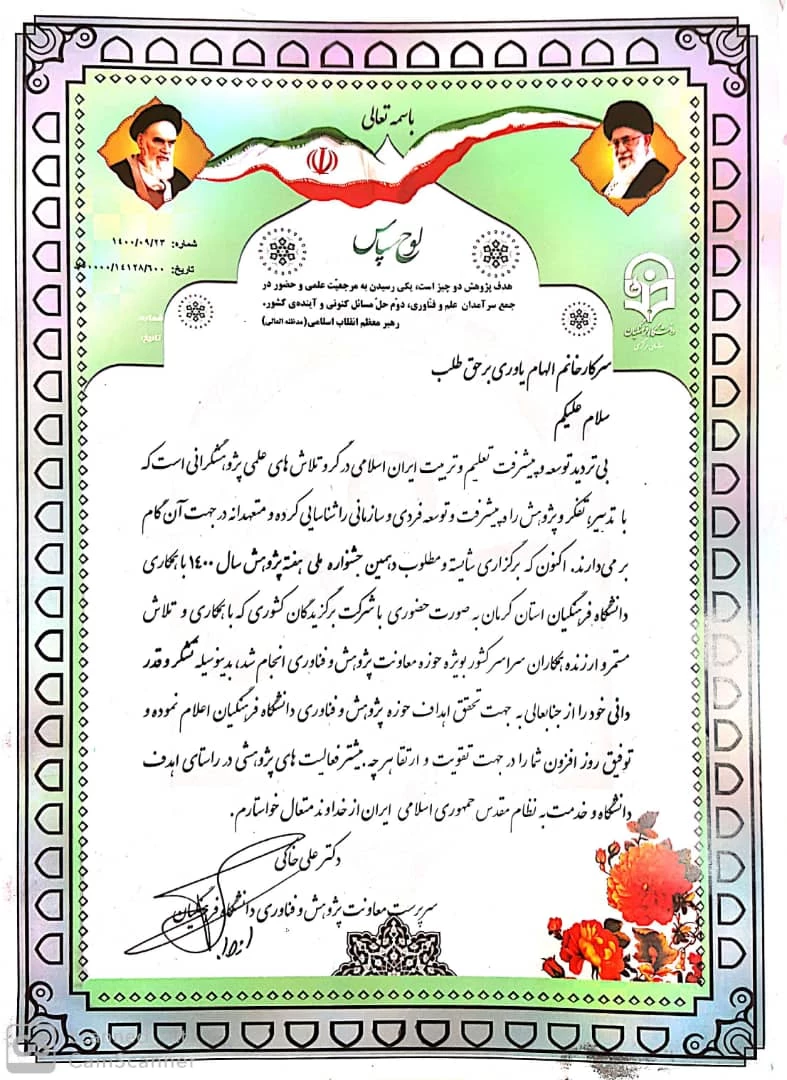 باسمه تعالی
لوح سپاس
شماره: ۱۴۰۰/۰۹/۲۳
تاریخ: ۵۰۰۰۰/۱۴۱۲۸/۶۰۰
هدف پژوهش دو چیز است، یکی رسیدن به مرجعیّت علمی و حضور در
جمع سرآمدان علم و فنّاوری، دوّم حلّ مسائل کنونی و آینده‌ی کشور.
رهبر معظم انقلاب اسلامی(مدظله العالی)
شماره:
تاریخ:
دانشگاه فرهنگیان
سازمان مرکزی
سرکار خانم الهام یاوری برحق طلب
سلام علیکم
بی تردید توسعه و پیشرفت تعلیم و تربیت ایران اسلامی در گرو تلاش های علمی پژوهشگرانی است که
با تدبیر، تفکر و پژوهش راه پیشرفت و توسعه فردی و سازمانی را شناسایی کرده و متعهدانه در جهت آن گام
بر می‌دارند. اکنون که برگزاری شایسته و مطلوب دهمین جشنواره ملی هفته پژوهش سال ۱۴۰۰ با همکاری
دانشگاه فرهنگیان استان کرمان به صورت حضوری با شرکت برگزیدگان کشوری که با همکاری و تلاش
مستمر و ارزنده همکاران سراسر کشور بویژه حوزه معاونت پژوهش و فناوری انجام شد، بدینوسیله تشکر و قدر
دانی خود را از جنابعالی به جهت تحقق اهداف حوزه پژوهش و فناوری دانشگاه فرهنگیان اعلام نموده و
توفیق روز افزون شما را در جهت تقویت و ارتقا هر چه بیشتر فعالیت های پژوهشی در راستای اهدف
دانشگاه و خدمت به نظام مقدس جمهوری اسلامی ایران از خداوند متعال خواستارم.
دکتر علی خاکی
سرپرست معاونت پژوهش و فناوری دانشگاه فرهنگیان
CamScanner